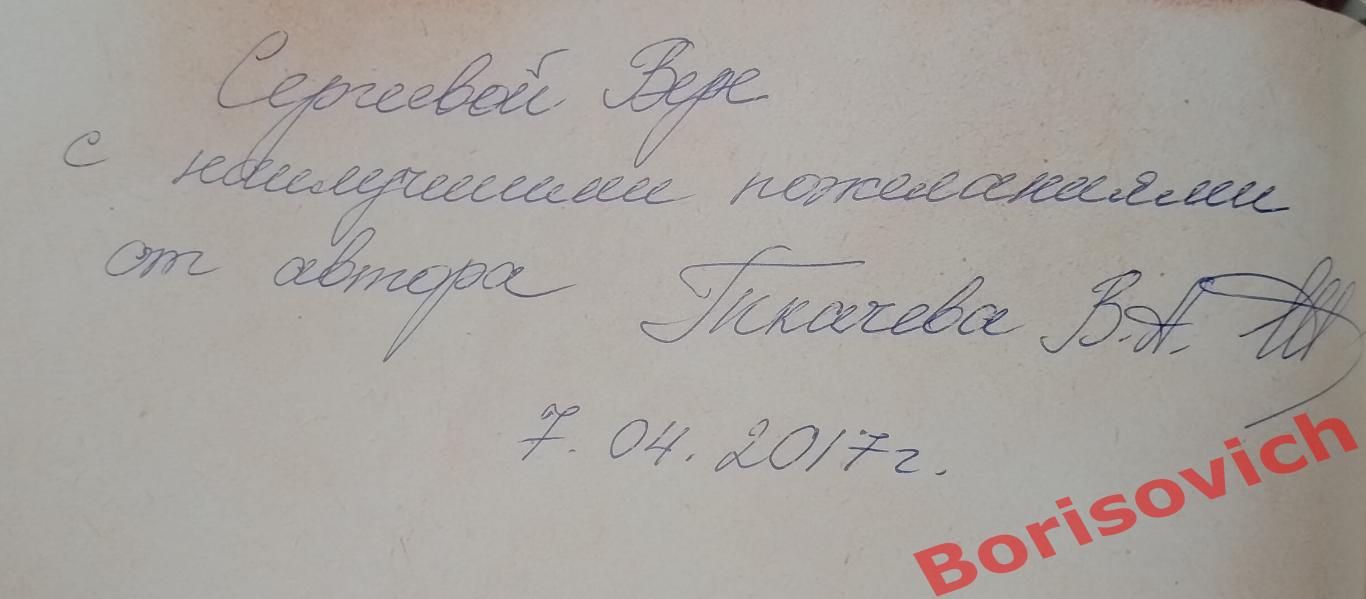 Сергеевой Вере
с наилучшими пожеланиями
от автора Тикачева В.А.
7.04.2017г.
Borisovich